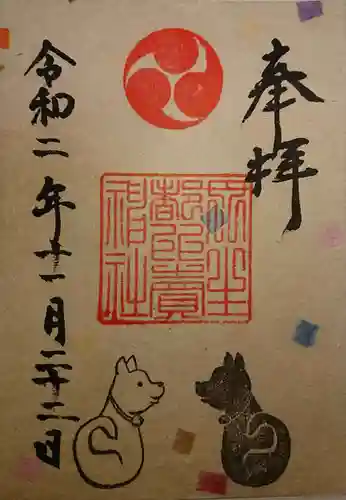 奉拝
神社
令和二年十一月二十二日